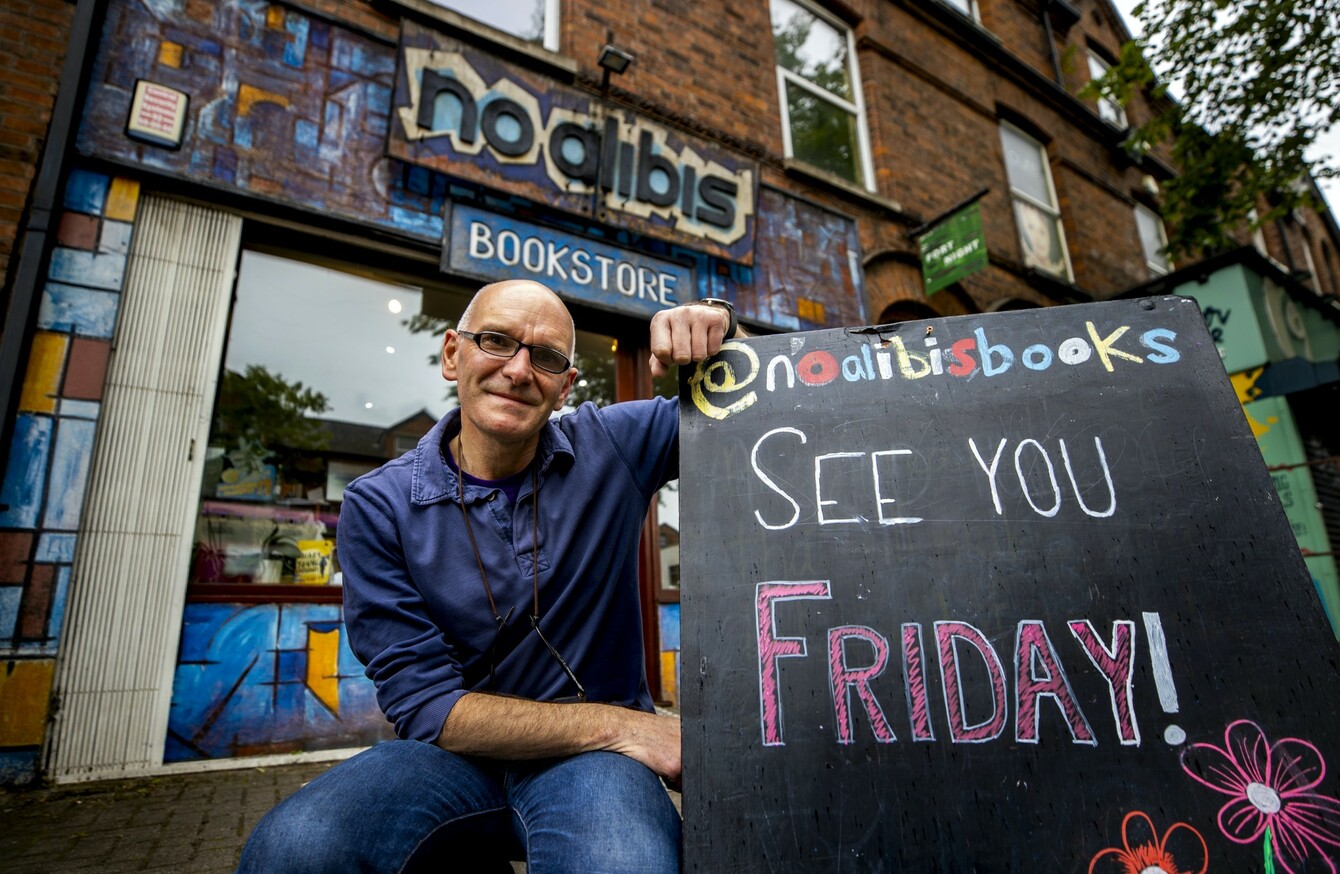 no alibis
BOOKSTORE
FORT
NIGHT
@noalibisbooks
SEE YOU
FRIDAY!